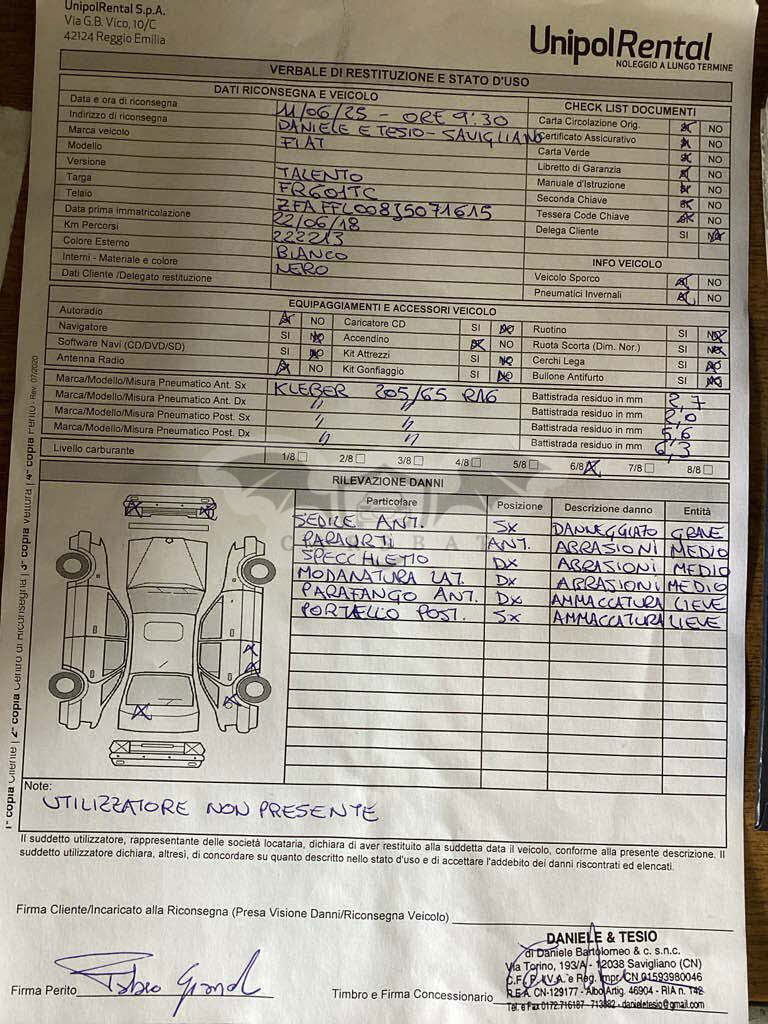 UnipolRental S.p.A.
Via G.B. Vico, 10/C
42124 Reggio Emilia
UnipolRental
NOLEGGIO A LUNGO TERMINE
VERBALE DI RESTITUZIONE E STATO D'USO
DATI RICONSEGNA E VEICOLO
Data e ora di riconsegna 11/06/25 - ORE 9:30
Indirizzo di riconsegna DANIELE E TESIO - SAVIGLIANO
Marca veicolo FIAT
Modello
Versione TALENTO
Targa FR601TC
Telaio ZFAFFL00835071615
Data prima immatricolazione 22/06/18
Km Percorsi 222213
Colore Esterno BIANCO
Interni - Materiale e colore NERO
Dati Cliente /Delegato restituzione
CHECK LIST DOCUMENTI
Carta Circolazione Orig. NO
Certificato Assicurativo NO
Carta Verde NO
Libretto di Garanzia NO
Manuale d'Istruzione NO
Seconda Chiave NO
Tessera Code Chiave NO
Delega Cliente SI NO
INFO VEICOLO
Veicolo Sporco NO
Pneumatici Invernali NO
EQUIPAGGIAMENTI E ACCESSORI VEICOLO
Autoradio NO Caricatore CD SI NO Ruotino SI NO
Navigatore SI NO Accendino NO Ruota Scorta (Dim. Nor.) SI NO
Software Navi (CD/DVD/SD) SI NO Kit Attrezzi SI NO Cerchi Lega SI NO
Antenna Radio NO Kit Gonfiaggio SI NO Bullone Antifurto SI NO
Marca/Modello/Misura Pneumatico Ant. Sx KLEBER 205/65 R16 Battistrada residuo in mm 2,7
Marca/Modello/Misura Pneumatico Ant. Dx // // Battistrada residuo in mm 2,0
Marca/Modello/Misura Pneumatico Post. Sx // // Battistrada residuo in mm 5,6
Marca/Modello/Misura Pneumatico Post. Dx // // Battistrada residuo in mm 6,3
Livello carburante 1/8 2/8 3/8 4/8 5/8 6/8 7/8 8/8
RILEVAZIONE DANNI
Particolare Posizione Descrizione danno Entità
SEDILE ANT. SX DANNEGGIATO GRAVE
PARAURTI ANT. ABRASIONI MEDIO
SPECCHIETTO DX ABRASIONI MEDIO
MODANATURA LAT. DX ABRASIONI MEDIO
PARAFANGO ANT. DX AMMACCATURA LIEVE
PORTELLO POST. SX AMMACCATURA LIEVE
Note:
UTILIZZATORE NON PRESENTE
Il suddetto utilizzatore, rappresentante delle società locataria, dichiara di aver restituito alla suddetta data il veicolo, conforme alla presente descrizione. Il
suddetto utilizzatore dichiara, altresì, di concordare su quanto descritto nello stato d'uso e di accettare l'addebito dei danni riscontrati ed elencati.
Firma Cliente/Incaricato alla Riconsegna (Presa Visione Danni/Riconsegna Veicolo)
Firma Perito
Timbro e Firma Concessionario
DANIELE & TESIO
di Daniele Bartolomeo & c. s.n.c.
Via Torino, 193/A - 12038 Savigliano (CN)
C.F. P.IVA e Reg. Impr. CN 01593980046
R.E.A. CN-129177 - Albo Artig. 46904 - RIA n. 142
Tel. e Fax 0172.716187 - 713382 - danieletesio@gmail.com